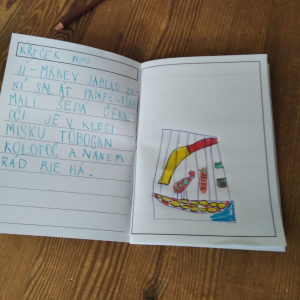 KŘEČEK POPO
JÍ-MRKEV JABLKO ZAJ
NÍ SALÁT PAMPELIŠK
MALÍ ŠEDÁ ČERNÉ
OČI JE V KLECI
MISKU TOBOGAN
KOLOTOČ A NANĚM
RÁD BJE HÁ.